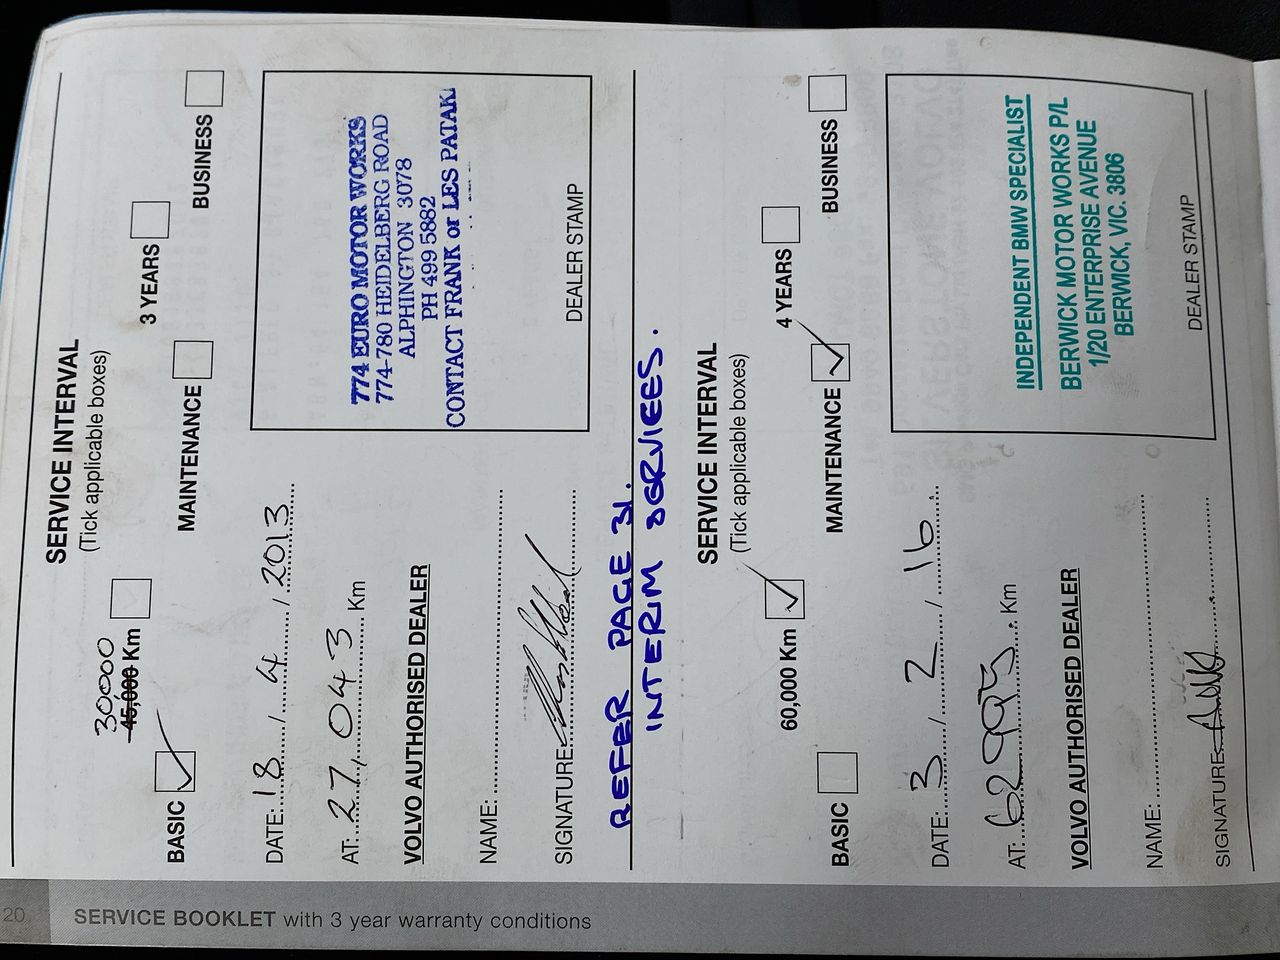 SERVICE INTERVAL
(Tick applicable boxes)
30000
45,000 Km
3 YEARS
BASIC
MAINTENANCE
BUSINESS
DATE: 18 / 4 / 2013
AT: 27,043 Km
VOLVO AUTHORISED DEALER
NAME:
SIGNATURE
774 EURO MOTOR WORKS
774-780 HEIDELBERG ROAD
ALPHINGTON 3078
PH 499 5882
CONTACT FRANK or LES PATAKI
DEALER STAMP
REFER PAGE 31.
INTERIM SERVICES.
SERVICE INTERVAL
(Tick applicable boxes)
60,000 Km
4 YEARS
BASIC
MAINTENANCE
BUSINESS
DATE: 3 / 2 / 16
AT: 62995 Km
VOLVO AUTHORISED DEALER
NAME:
SIGNATURE
INDEPENDENT BMW SPECIALIST
BERWICK MOTOR WORKS P/L
1/20 ENTERPRISE AVENUE
BERWICK, VIC. 3806
DEALER STAMP
20
SERVICE BOOKLET with 3 year warranty conditions